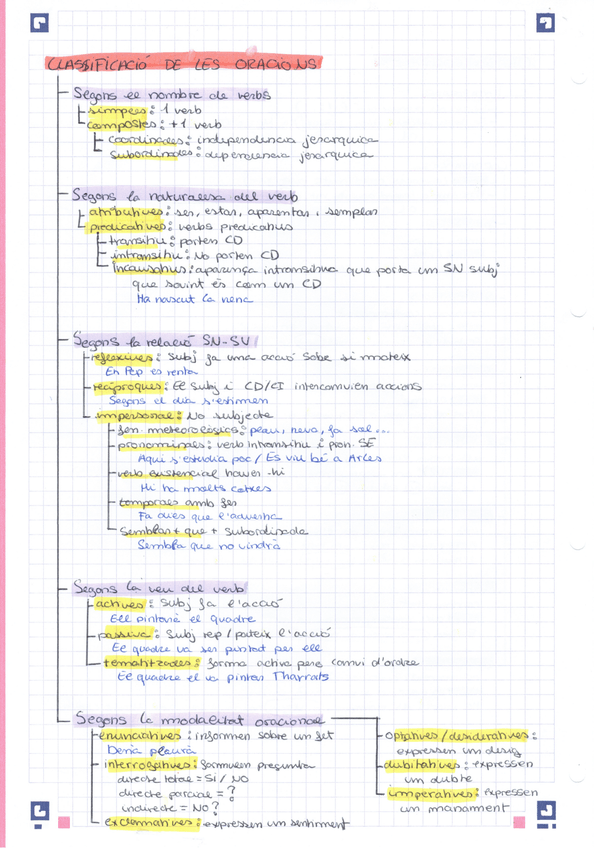 CLASSIFICACIÓ DE LES ORACIONS
Segons el nombre de verbs
simples: 1 verb
compostes: +1 verb
coordinades: independència jeràrquica
subordinades: dependència jeràrquica
Segons la naturalesa del verb
atributives: ser, estar, aparentar i semblar
predicatives: verbs predicatius
transitiu: porten CD
intransitiu: No porten CD
Incausatius: aparença intransitiva que porta un SN subj
que sovint és com un CD
Ha nascut la nena
Segons la relació SN-SV
reflexives: Subj fa una acció sobre si mateix
En Pep es renta
recíproques: El Subj i CD/CI intercanvien accions
Segons el dia s'estimen
impersonal: No subjecte
fen. meteorològics: plou, neva, fa sol...
pronominals: verb intransitiu i pron. SE
Aquí s'estudia poc / Es viu bé a Arles
verb existencial haver-hi
Hi ha molts cotxes
temporals amb fer
Fa dies que l'advertia
Semblar + que + subordinada
Sembla que no vindrà
Segons la veu del verb
actives: Subj fa l'acció
Ell pintava el quadre
passiva: Subj rep / pateix l'acció
El quadre va ser pintat per ell
tematitzades: forma activa però canvi d'ordre
El quadre el va pintar Tharrats
Segons la modalitat oracional
enunciatives: informen sobre un fet
Demà plourà
interrogatives: formulen pregunta
directe total = Sí / NO
directe parcial = ?
indirecte = NO ?
exclamatives: expressen un sentiment
optatives / desideratives:
expressen un desig
dubitatives: expressen
un dubte
imperatives: expressen
un manament